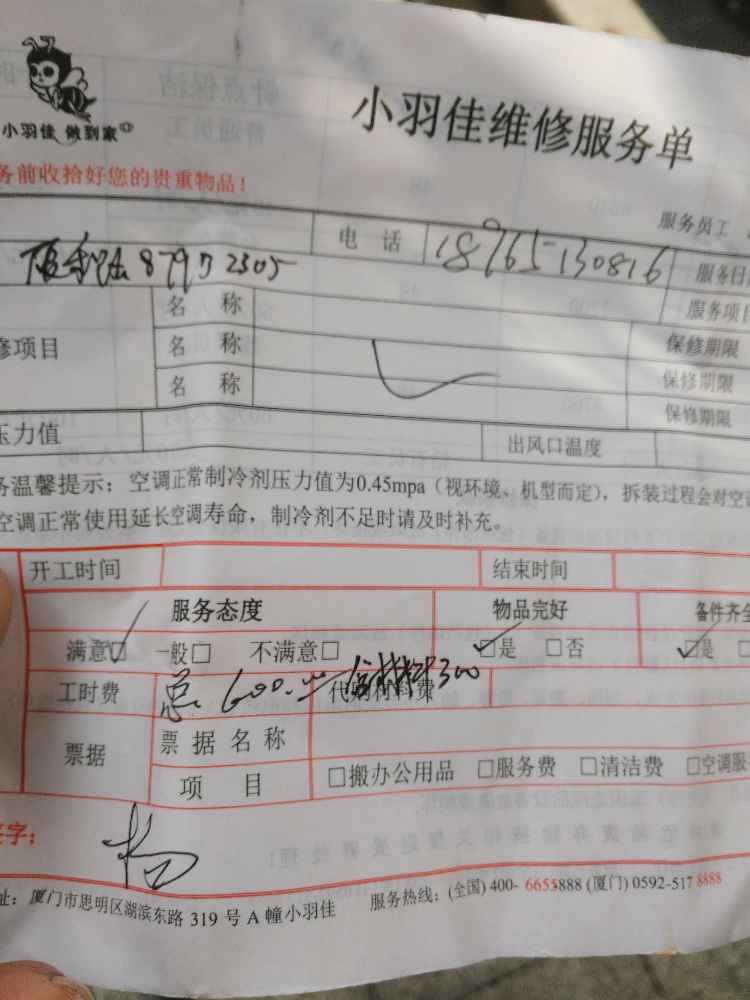 小羽佳 做到家
小羽佳维修服务单
务前收拾好您的贵重物品！
服务员工
电 话 18965130816 服务日
名 称 服务项目
修项目 名 称 保修期限
名 称 保修期限
保修期限
压力值 出风口温度
务温馨提示：空调正常制冷剂压力值为0.45mpa（视环境、机型而定），拆装过程会对空
空调正常使用延长空调寿命，制冷剂不足时请及时补充。
开工时间 结束时间
服务态度 物品完好 备件齐全
满意☑ 一般□ 不满意□ ☑是 □否 ☑是 □
工时费 总 600 代购材料费 300
票据 票据名称
项 目 □搬办公用品 □服务费 □清洁费 □空调服
签字：
址：厦门市思明区湖滨东路 319 号 A 幢小羽佳 服务热线：(全国) 400- 6655888 (厦门) 0592-517 8888